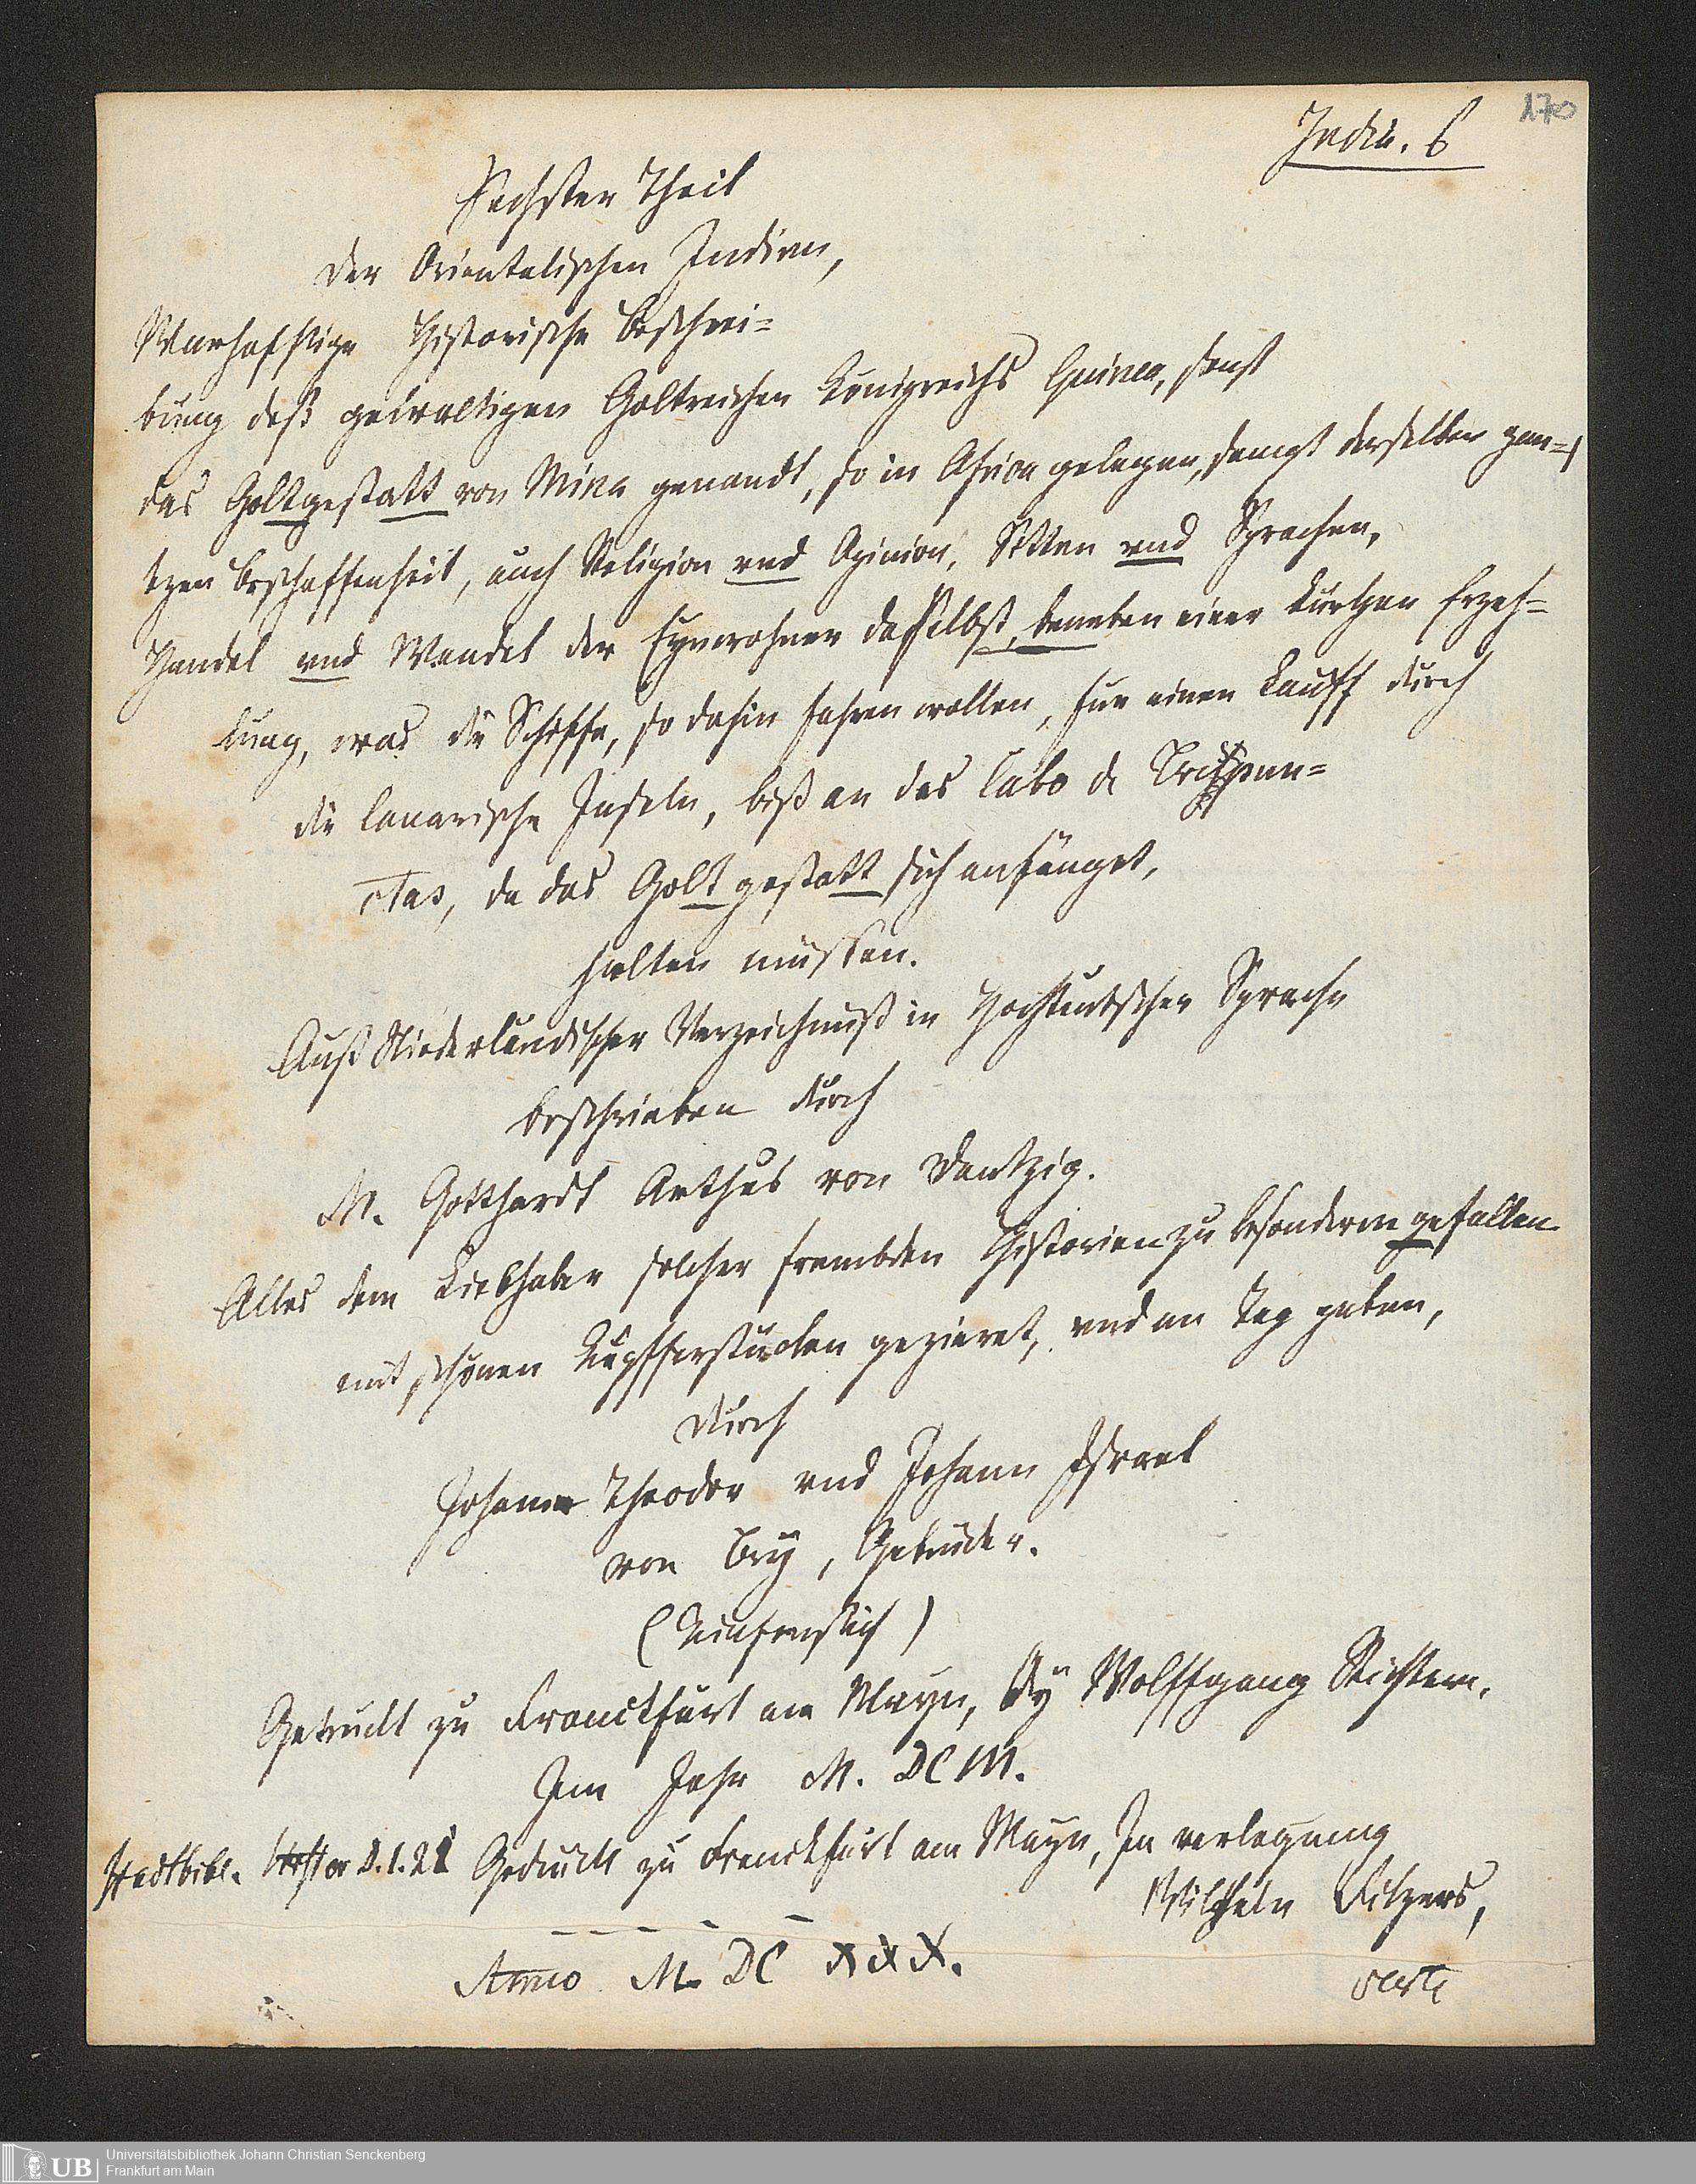 170
India. 6
Sechster Theil
der Orientalischen Indien,
Warhafftige Historische Beschrei=
bung deß gewaltigen Goltreichen Königreichs Guinea, sonst
das Goltgestatt von Mina genandt, so in Africa gelegen, sampt derselben gan=
tzen Beschaffenheit, auch Religion vnd Opinion, Sitten vnd Sprachen,
Handel vnd Wandel der Eynwohner daselbst, beneben einer kurtzen Erzeh=
lung, was die Schiffe, so dahin fahren wollen, fur einen Lauff durch
die Canarische Inseln, biß an das Cabo de Trespun=
ctas, da das Golt gestatt sich anfänget,
halten müssen.
Auß Niederländischer Verzeichnuß in Hochteutscher Sprache
beschrieben durch
M. Gotthardt Arthus von Dantzig.
Alles dem Liebhaber solcher frembden Historien zu besonderm gefallen
mit schönen Kupfferstucken gezieret, vnd an Tag geben,
durch
Johann Theodor vnd Johann Israel
von Bry, Gebrüder.
(Titelkupfer)
Getruckt zu Franckfurt am Mayn, By Wolffgang Richtern,
Im Jahr M. DCIII.
Stadtbibl. Gedruckt zu Franckfurt am Mayn, In verlegung
Wilhelm Fitzers,
Anno M. DC XXX.
verte
UB
Universitätsbibliothek Johann Christian Senckenberg
Frankfurt am Main